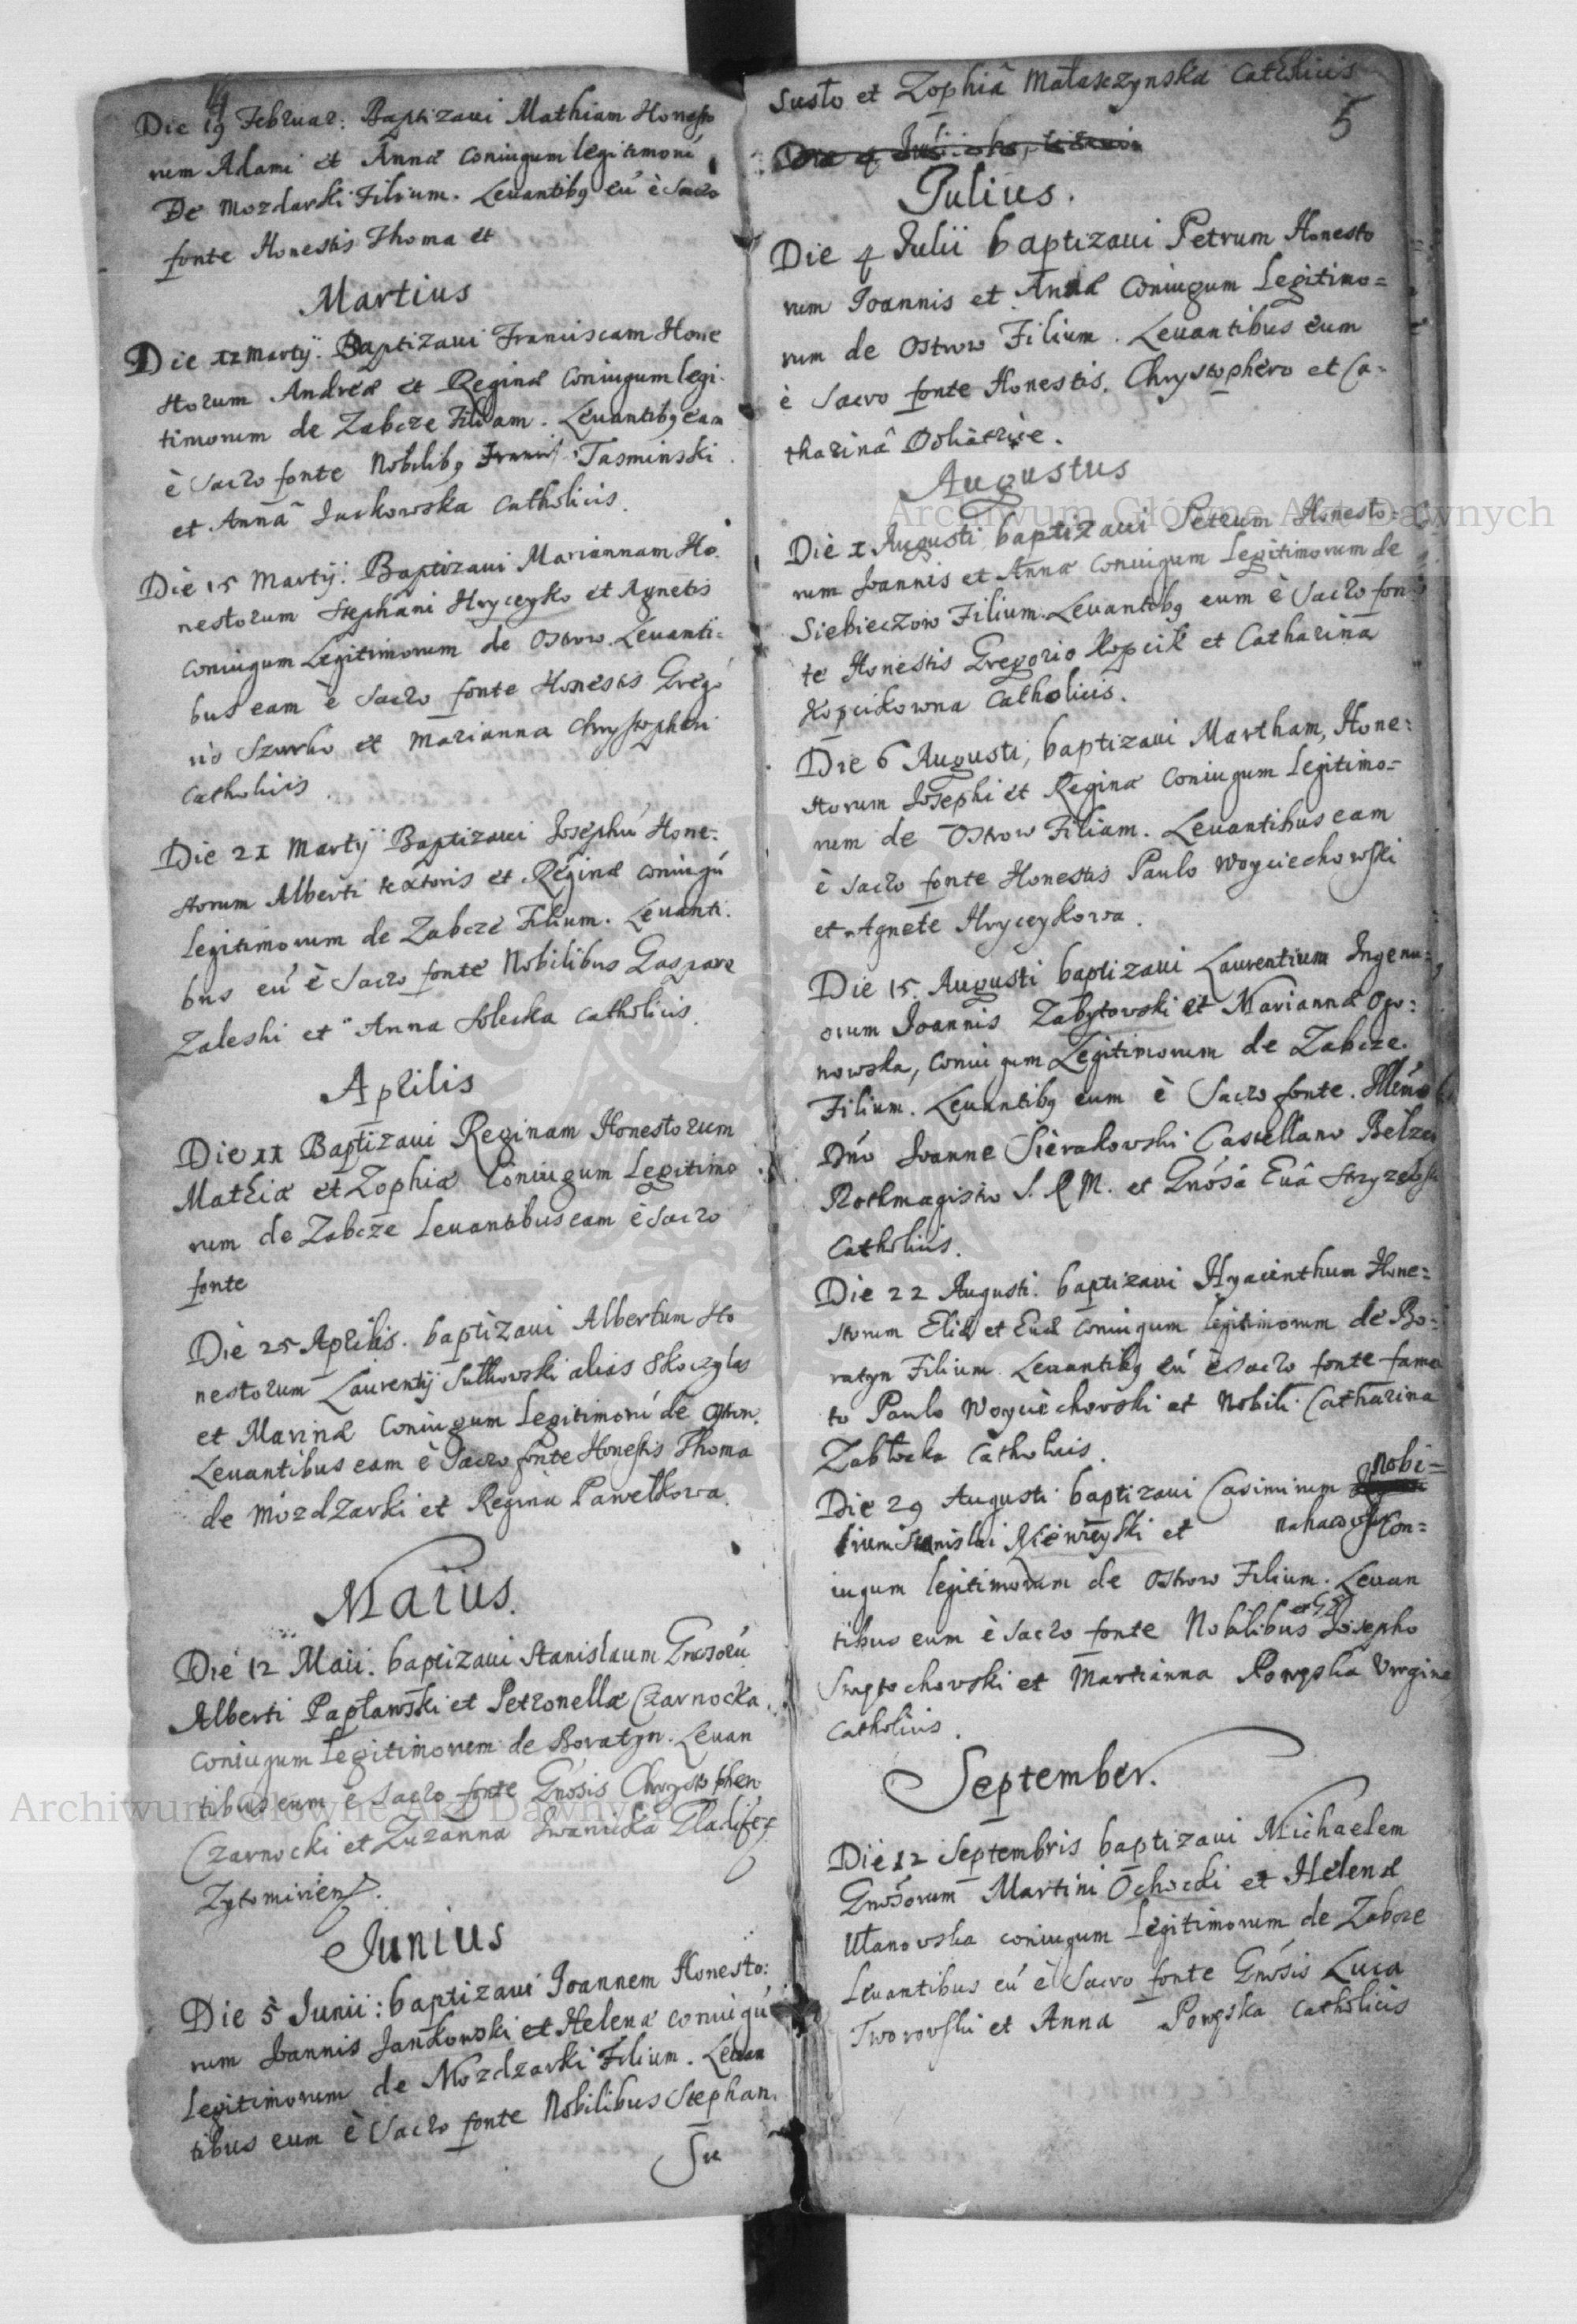 4
Die 19 Februar: Baptizaui Mathiam Honesto
rum Adami et Annæ Coniugum legitimorú
De Mozdarski Filium. Leuantibꝫ eú è Sacro
fonte Honestis Thoma et
Martius
Die 12 Martij. Baptizaui Franciscam Hone
storum Andreæ et Reginæ Coniugum legi-
timorum de Zabcze Filiam. Leuantibꝫ eam
è Sacro fonte Nobilibꝫ Jasminski
et Annâ Juckowska Catholicis.
Die 15 Martij: Baptizaui Mariannam Ho
nestorum Stephani Hryceyko et Agnetis
Coniugum Legitimorum de Ostrow. Leuanti-
bus eam è Sacro fonte Honestis Grego
rio Szurko et Marianna Chrystopheri
Catholicis.
Die 21 Martij Baptizaui Josephú Hone-
storum Alberti textoris et Reginæ coniugú
legitimorum de Zabcze Filium. Leuanti-
bus eú è Sacro fonte Nobilibus Gaspare
Zaleski et Anna Solecka Catholicis.
Aprilis
Die 11 Baptizaui Reginam Honestorum
Mathiæ et Zophiæ Coniugum Legitimo
rum de Zabcze Leuantibus eam è Sacro
fonte
Die 25 Aprilis. baptizaui Albertum Ho
nestorum Laurentij Sulkowski alias Skoczylas
et Marinæ Coniugum Legitimorú de Ostrow.
Leuantibus eam è Sacro fonte Honestis Thoma
de Mozdzarki et Regina Pawełkowa.
Maius.
Die 12 Maii. baptizaui Stanislaum Gnosorú
Alberti Papławski et Petronellæ Czarnocka
Coniugum Legitimorum de Boratyn. Leuan
tibus eum è Sacro fonte Gnósis Chrystophero
Czarnocki et Zuzanna Iwanicka Gladifer
Zytomirien.
Junius
Die 5 Junii: baptizaui Joannem Honesto:
rum Joannis Jankowski et Helenæ coniugú
Legitimorum de Mozdzarki Filium. Leuan
tibus eum è Sacro fonte Nobilibus Stephan.
Su
Susto et Zophiâ Matasczynska Catholicis
5
Die 4 Julii baptizaui
Julius.
Die 4 Julii baptizaui Petrum Honesto
rum Joannis et Annæ Coniugum Legitimo=
rum de Ostrow Filium. Leuantibus eum
è Sacro fonte Honestis. Chrystophero et Ca-
tharinâ
Augustus
Die 1 Augusti baptizaui Petrum Honesto:
rum Joannis et Annæ Coniugum Legitimorum de
Siebieczow Filium. Leuantibꝫ eum è Sacro fon
te Honestis Gregorio Kopcik et Catharina
Kopcikowna Catholicis.
Die 6 Augusti, baptizaui Martham, Hone:
storum Josephi et Reginæ Coniugum Legitimo=
rum de Ostrow Filiam. Leuantibus eam
è Sacro fonte Honestis Paulo Woyciechowski
et Agnete Hryceykowa.
Die 15. Augusti baptizaui Laurentium Ingenu-
orum Joannis Zabytowski et Mariannæ Opo:
nowska, Coniugum Legitimorum de Zabcze.
Filium. Leuantibꝫ eum è Sacro fonte. Illmo
Dno Joanne Sierakowski Castellano Belzen
Rothmagistro S. R M. et Gnósâ Euâ Strzyzewska
Catholicis.
Die 22 Augusti. baptizaui Hyacinthum Hone=
storum Eliæ et Euæ Coniugum legitimorum de Bo-
ratyn Filium Leuantibꝫ eú è Sacro fonte fama
to Paulo Woyciechowski et Nobili Catharina
Zabłocka Catholicis.
Die 29 Augusti baptizaui Casimirum nobi=
lium Stanislai et Con=
iugum legitimorum de Ostrow Filium. Leuan
tibus eum è Sacro fonte Nobilibus Josepho
Swiętochowski et Martianna Powęska Virgine
Catholicis.
September.
Die 12 Septembris baptizaui Michaelem
Gnósorum Martini Ochocki et Helenæ
Ułanowska coniugum Legitimorum de Zabcze
Leuantibus eú è Sacro fonte Gnósis Luca
Tworowski et Anna Powęska Catholicis
Archiwum Główne Akt Dawnych
Archiwum Główne Akt Dawnych